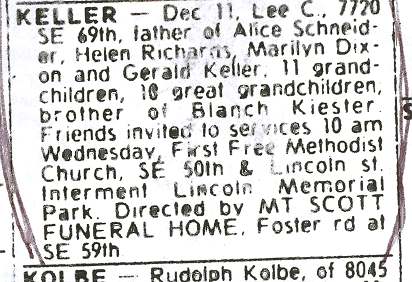 KELLER — Dec 11, Lee C., 7720
SE 69th, father of Alice Schneid-
er, Helen Richards, Marilyn Dix-
on and Gerald Keller, 11 grand-
children, 10 great grandchildren,
brother of Blanch Kiester.
Friends invited to services 10 am
Wednesday, First Free Methodist
Church, SE 50th & Lincoln st.
Interment Lincoln Memorial
Park. Directed by MT SCOTT
FUNERAL HOME, Foster rd at
SE 59th
KOLBE — Rudolph Kolbe, of 8045